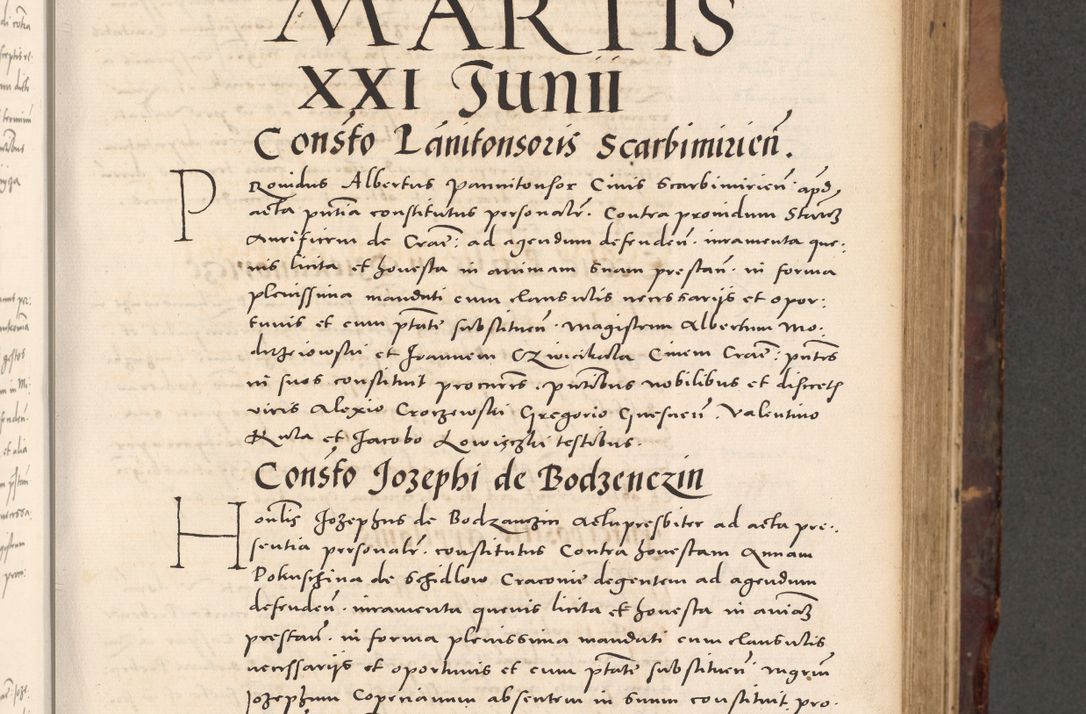 MARTIS
XXI Junii
Consto Lanitonsoris Scarbimirien.
Providus Albertus pannitonsor Civis Scarbimirien. apd
acta pntia constitutus personalr. Contra providum
Aurificem de Crac: ad agendum defenden. iuramenta que:
vis licita et honesta in animam suam prestan. in forma
plenissima mandati cum clausulis necessarijs et opor:
tunis et cum ptate substituen. Magistrum Albertum Mo.
et Joannem Civem Crac: pntes
in suos constituit procures. pntibus nobilibus et discretis
viris Alexio Gregorio Valentino
Ruta et Jacobo testibus.
Consto Jozephi de Bodzenczin
Honlis Jozephus de Bodzanczin Altupresbiter ad acta pre:
sentia personalr. constitutus Contra honestam Annam
de Schidlow Cracovie degentem ad agendum
defenden. iuramenta quevis licita et honesta in aniam
prestan. in forma plenissima mandati cum clausulis
necessarijs et oportunis et cum ptate substituen. mgrum
Jozephum absentem in suum constituit pro.